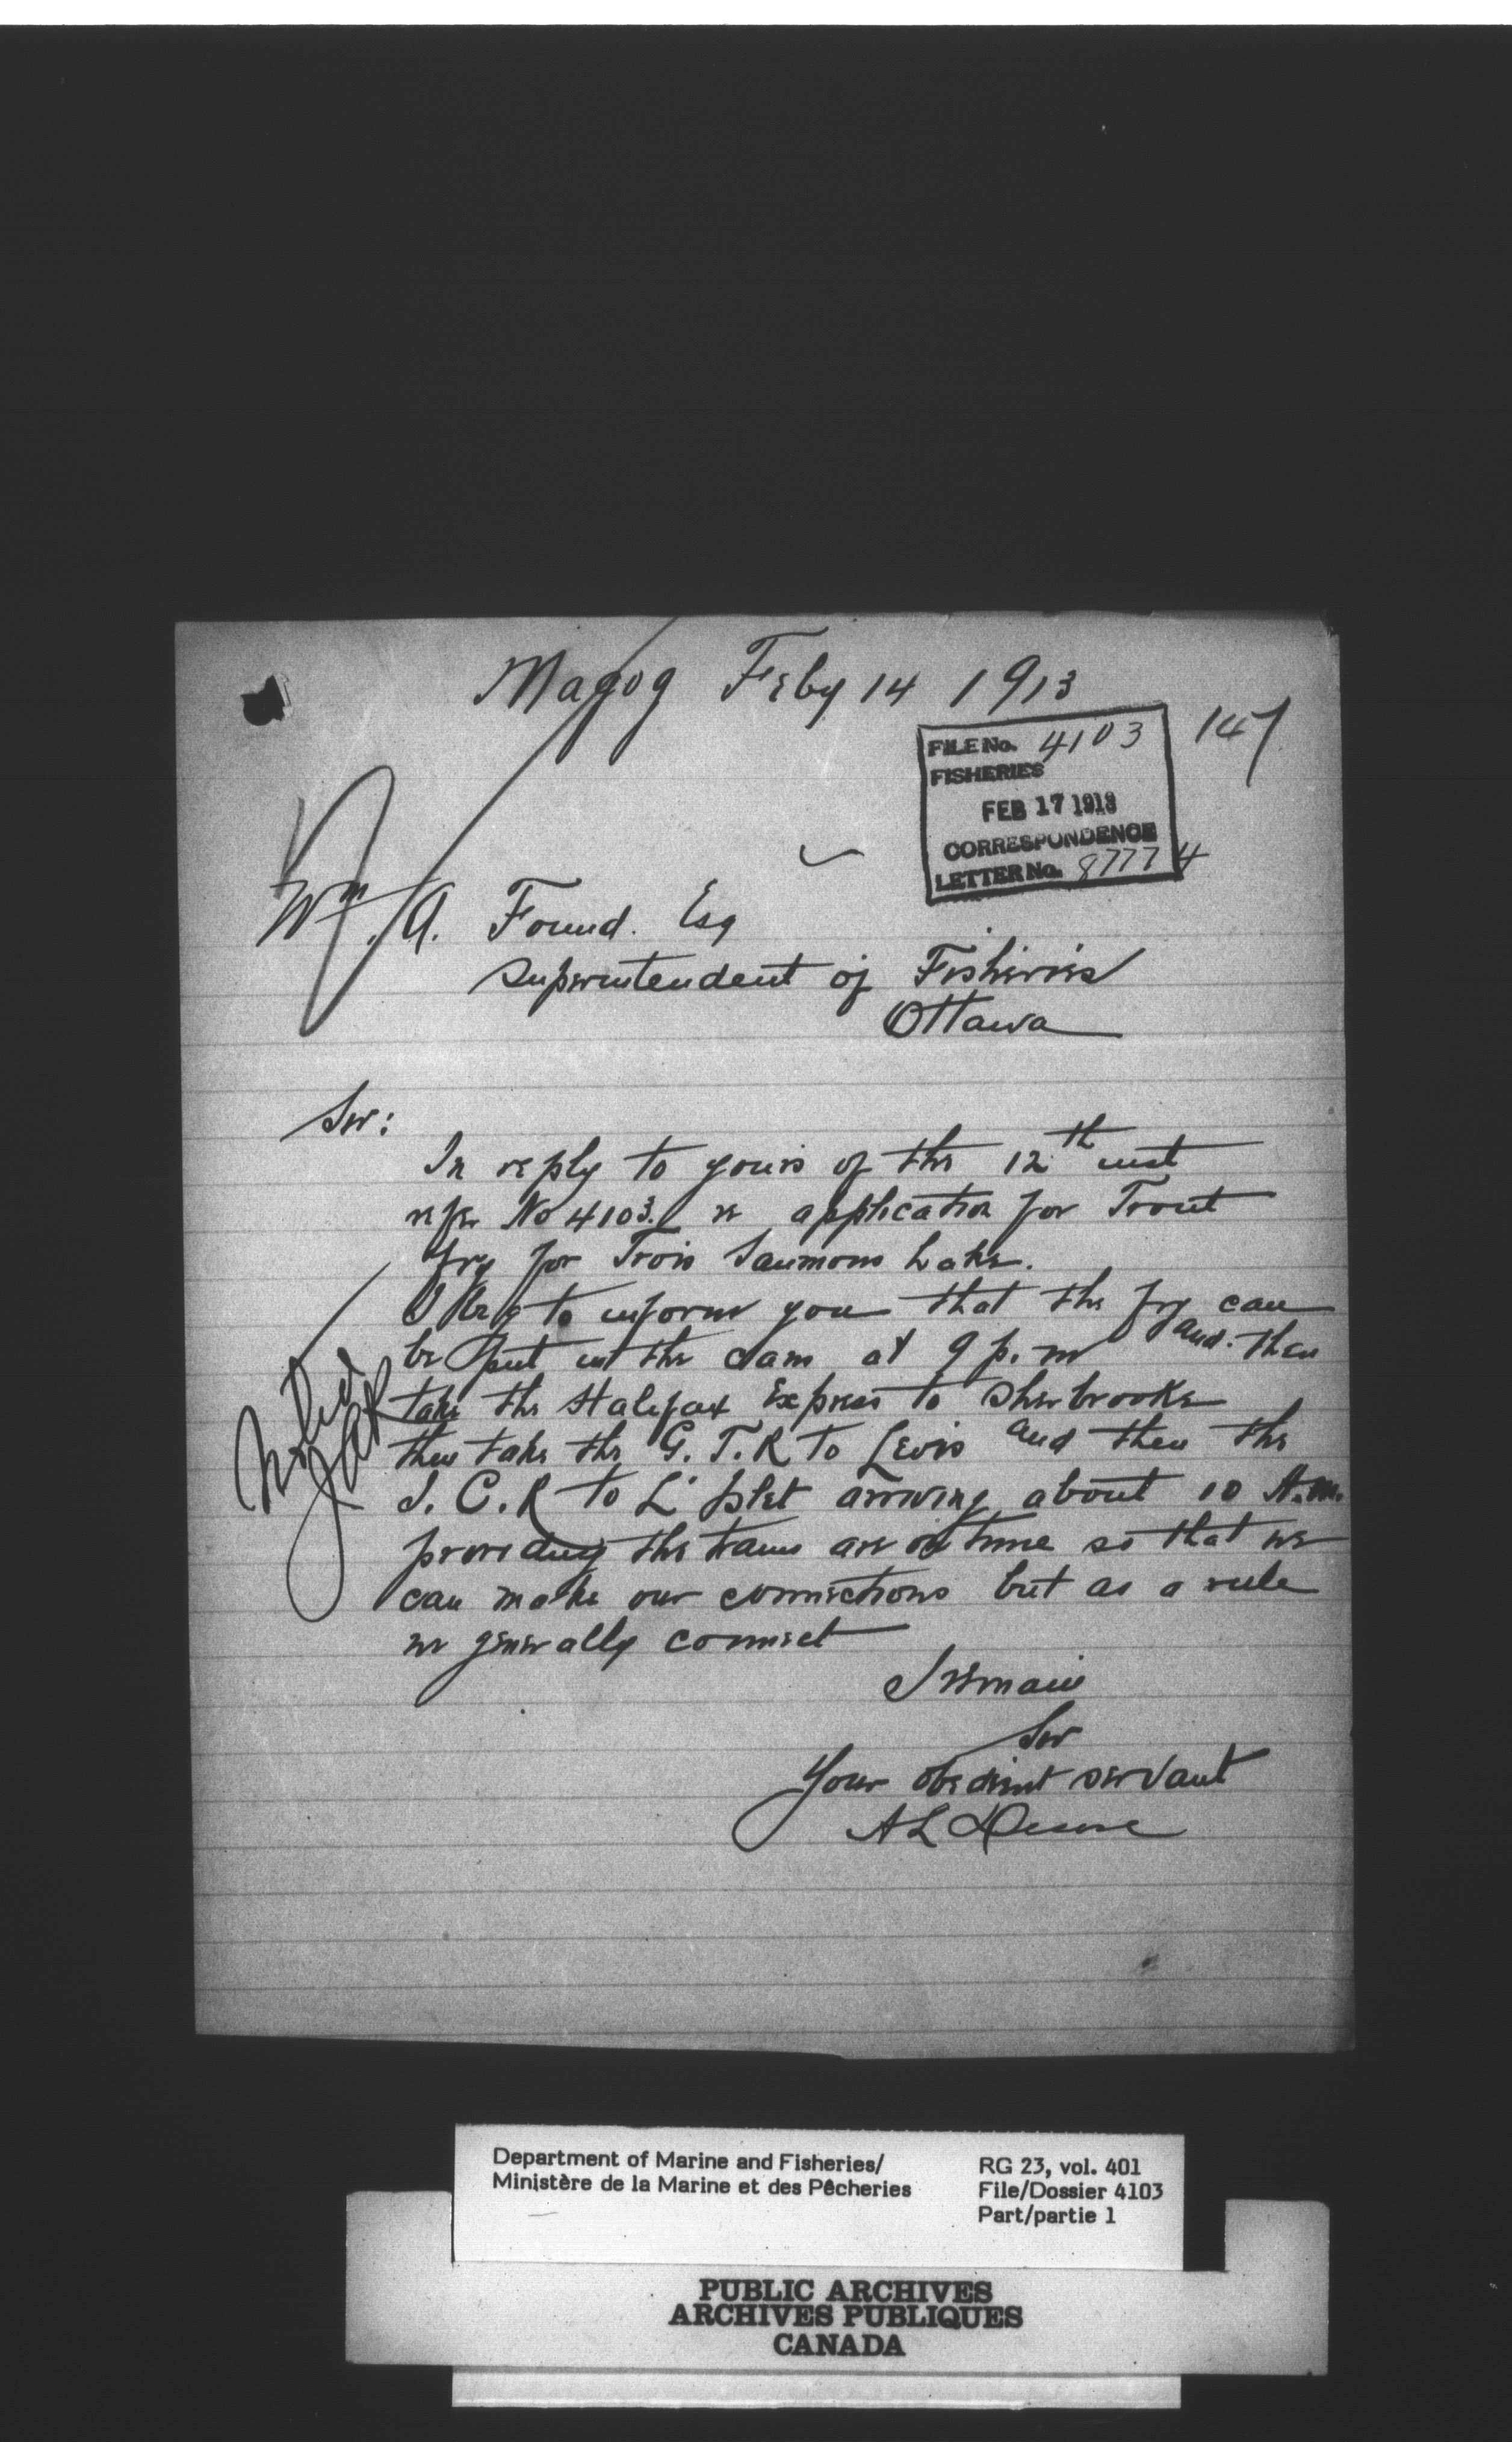 Magog Feby 14 1913
147
FILE No. 4103
FISHERIES
FEB 17 1913
CORRESPONDENCE
LETTER No. 87774
Wm. A. Found. Esq
Superintendent of Fisheries
Ottawa
Sir:
In reply to yours of the 12th inst
refer No 4103. re application for Trout
fry for Trois Saumons Lake.
I beg to inform you that the fry can
be put in the cans at 9 p.m and then
take the Halifax Express to Sherbrooke
then take the G. T. R to Levis and then the
I. C. R to L'Islet arriving about 10 A.M.
providing the trains are on time so that we
can make our connections but as a rule
we generally connect
Noted
I remain
Sir
Your obedient servant
A L
Department of Marine and Fisheries/
Ministère de la Marine et des Pêcheries
RG 23, vol. 401
File/Dossier 4103
Part/partie 1
PUBLIC ARCHIVES
ARCHIVES PUBLIQUES
CANADA